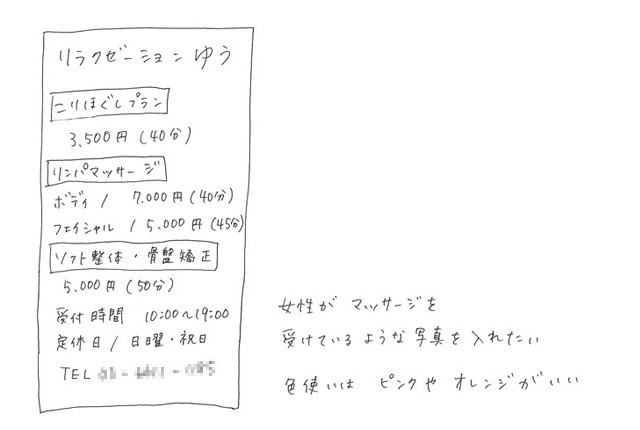 リラクゼーション ゆう
こりほぐしプラン
3,500円(40分)
リンパマッサージ
ボディ / 7,000円(40分)
フェイシャル / 5,000円(45分)
ソフト整体・骨盤矯正
5,000円(50分)
受付時間 10:00〜19:00
定休日 / 日曜・祝日
TEL
女性が マッサージを
受けているような写真を入れたい
色使いは ピンクや オレンジがいい